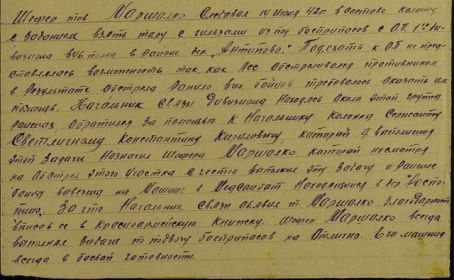 Шофер тов Маршалко Следовал 14 Июня 42г в составе колонн
с заданием взять тару с гильзами из под боеприпасов с О.П. 1го ди-
визиона в/б полка в районе дер. Антипово. Подехать к ОП не пред-
ставлялось возможности так как Лес обстреливался противником
в Результате обстрела Ранило бойцов требовалось оказать им
помощь. Начальник связи Дивизиона находясь около этой группы
раненых обратился за помощью к Начальнику Колонны Сержанту
Светличному Константину Кириловичу, который для выполнения
этой Задачи Назначил Шофера Маршалко который несмотря
на обстрел этого участка с честью выполнил эту Задачу и Раненые
были вывезены на Машине в Медсанбат Находящийся в дер
За что Начальник связи обявил т. Маршалко благодарность
вписав ее в Красноармейскую Книжку. Шофер Маршалко всегда
выполнял Задачи по подвозу боеприпасов на Отлично. Его машина
всегда в боевой готовности.